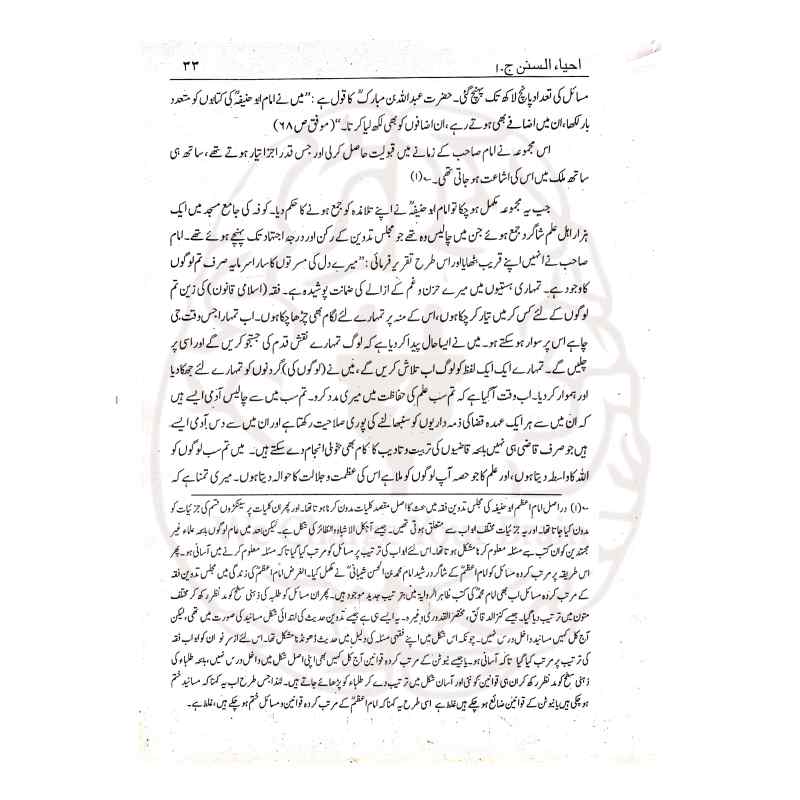 احیاء السنن ج-۱ ۳۳
مسائل کی تعداد پانچ لاکھ تک پہنچ گئی۔ حضرت عبداللہ بن مبارکؒ کا قول ہے : "میں نے امام ابو حنیفہؒ کی کتابوں کو متعدد
بار لکھا، ان میں اضافے بھی ہوتے رہے، ان اضافوں کو بھی لکھ لیا کرتا۔" (موفق ص ۶۸)
اس مجموعہ نے امام صاحب کے زمانے میں قبولیت حاصل کر لی اور جس قدر اجزا تیار ہوتے تھے، ساتھ ہی
ساتھ ملک میں اس کی اشاعت ہو جاتی تھی۔ ←(۱)
جب یہ مجموعہ مکمل ہو چکا تو امام ابو حنیفہؒ نے اپنے تلامذہ کو جمع ہونے کا حکم دیا۔ کوفہ کی جامع مسجد میں ایک
ہزار اہل علم شاگرد جمع ہوئے جن میں چالیس وہ تھے جو مجلس تدوین کے رکن اور درجہ اجتہاد تک پہنچے ہوئے تھے۔ امام
صاحب نے انہیں اپنے قریب بٹھایا اور اس طرح تقریر فرمائی : "میرے دل کی مسرتوں کا سارا سرمایہ صرف تم لوگوں
کا وجود ہے۔ تمہاری ہستیوں میں میرے حزن و غم کے ازالے کی ضمانت پوشیدہ ہے۔ فقہ (اسلامی قانون) کی زین تم
لوگوں کے لئے کس کر میں تیار کر چکا ہوں، اس کے منہ پر تمہارے لئے لگام بھی چڑھا چکا ہوں۔ اب تمہارا جس وقت جی
چاہے اس پر سوار ہو سکتے ہو۔ میں نے ایسا حال پیدا کر دیا ہے کہ لوگ تمہارے نقش قدم کی جستجو کریں گے اور اسی پر
چلیں گے۔ تمہارے ایک ایک لفظ کو لوگ اب تلاش کریں گے، میں نے (لوگوں کی) گردنوں کو تمہارے لئے جھکا دیا
اور ہموار کر دیا۔ اب وقت آ گیا ہے کہ تم سب علم کی حفاظت میں میری مدد کرو۔ تم سب میں سے چالیس آدمی ایسے ہیں
کہ ان میں سے ہر ایک عہدہ قضا کی ذمہ داریوں کو سنبھالنے کی پوری صلاحیت رکھتا ہے اور ان میں سے دس آدمی ایسے
ہیں جو صرف قاضی ہی نہیں بلکہ قاضیوں کی تربیت و تادیب کا کام بھی بخوبی انجام دے سکتے ہیں۔ میں تم سب لوگوں کو
اللہ کا واسطہ دیتا ہوں، اور علم کا جو حصہ آپ لوگوں کو ملا ہے اس کی عظمت و جلالت کا حوالہ دیتا ہوں۔ میری تمنا ہے کہ
←(۱) دراصل امام اعظم ابو حنیفہ کی مجلس تدوین فقہ میں بحث کا اصل مقصد کلیات مدون کرنا ہوتا تھا۔ اور پھر ان کلیات پر سینکڑوں قسم کی جزئیات کو
مدون کیا جاتا تھا۔ اور یہ جزئیات مختلف ابواب سے متعلق ہوتی تھیں۔ جیسے آجکل الاشباہ والنظائر کی شکل ہے۔ لیکن بعد میں عام لوگوں بلکہ علماء غیر
مجتہدین کو ان کتب سے مسئلہ معلوم کرنا مشکل ہوتا تھا۔ اس لئے ابواب کی ترتیب پر مسائل کو مرتب کیا گیا تاکہ مسئلہ معلوم کرنے میں آسانی ہو۔ پھر
اس طریقہ پر مرتب کردہ مسائل کو امام اعظمؒ کے شاگرد رشید امام محمد بن الحسن شیبانیؒ نے مکمل کیا۔ الغرض امام اعظمؒ کی زندگی میں مجلس تدوین فقہ
کے مرتب کردہ مسائل اب بھی امام محمدؒ کی کتب ظاہر الروایۃ میں بترتیب جدید موجود ہیں۔ پھر ان مسائل کو طلبہ کی ذہنی سطح کو مد نظر رکھ کر مختلف
متون میں ترتیب دیا گیا۔ جیسے کنزالدقائق، مختصر القدوری وغیرہ۔ یہ ایسے ہی ہے جیسے تدوین حدیث کی ابتدائی شکل مسانید کی صورت میں تھی، لیکن
آج کل کہیں مسانید داخل درس نہیں۔ چونکہ اس شکل میں اپنے فقہی مسئلہ کی دلیل میں حدیث ڈھونڈنا مشکل تھا۔ اس لئے از سر نو ان کو ابواب فقہ
کی ترتیب پر مرتب کیا گیا تاکہ آسانی ہو۔ یا جیسے نیوٹن کے مرتب کردہ قوانین آج کل کہیں بھی اپنی اصل شکل میں داخل درس نہیں، بلکہ طلباء کی
ذہنی سطح کو مد نظر رکھ کر ان ہی قوانین کو نئی اور آسان شکل میں ترتیب دے کر طلباء کو پڑھائے جاتے ہیں۔ لہذا جس طرح اب یہ کہنا کہ مسانید ختم
ہو چکی ہیں یا نیوٹن کے قوانین ضائع ہو چکے ہیں غلط ہے اسی طرح یہ کہنا کہ امام اعظمؒ کے مرتب کردہ قوانین و مسائل ختم ہو چکے ہیں، غلط ہے۔